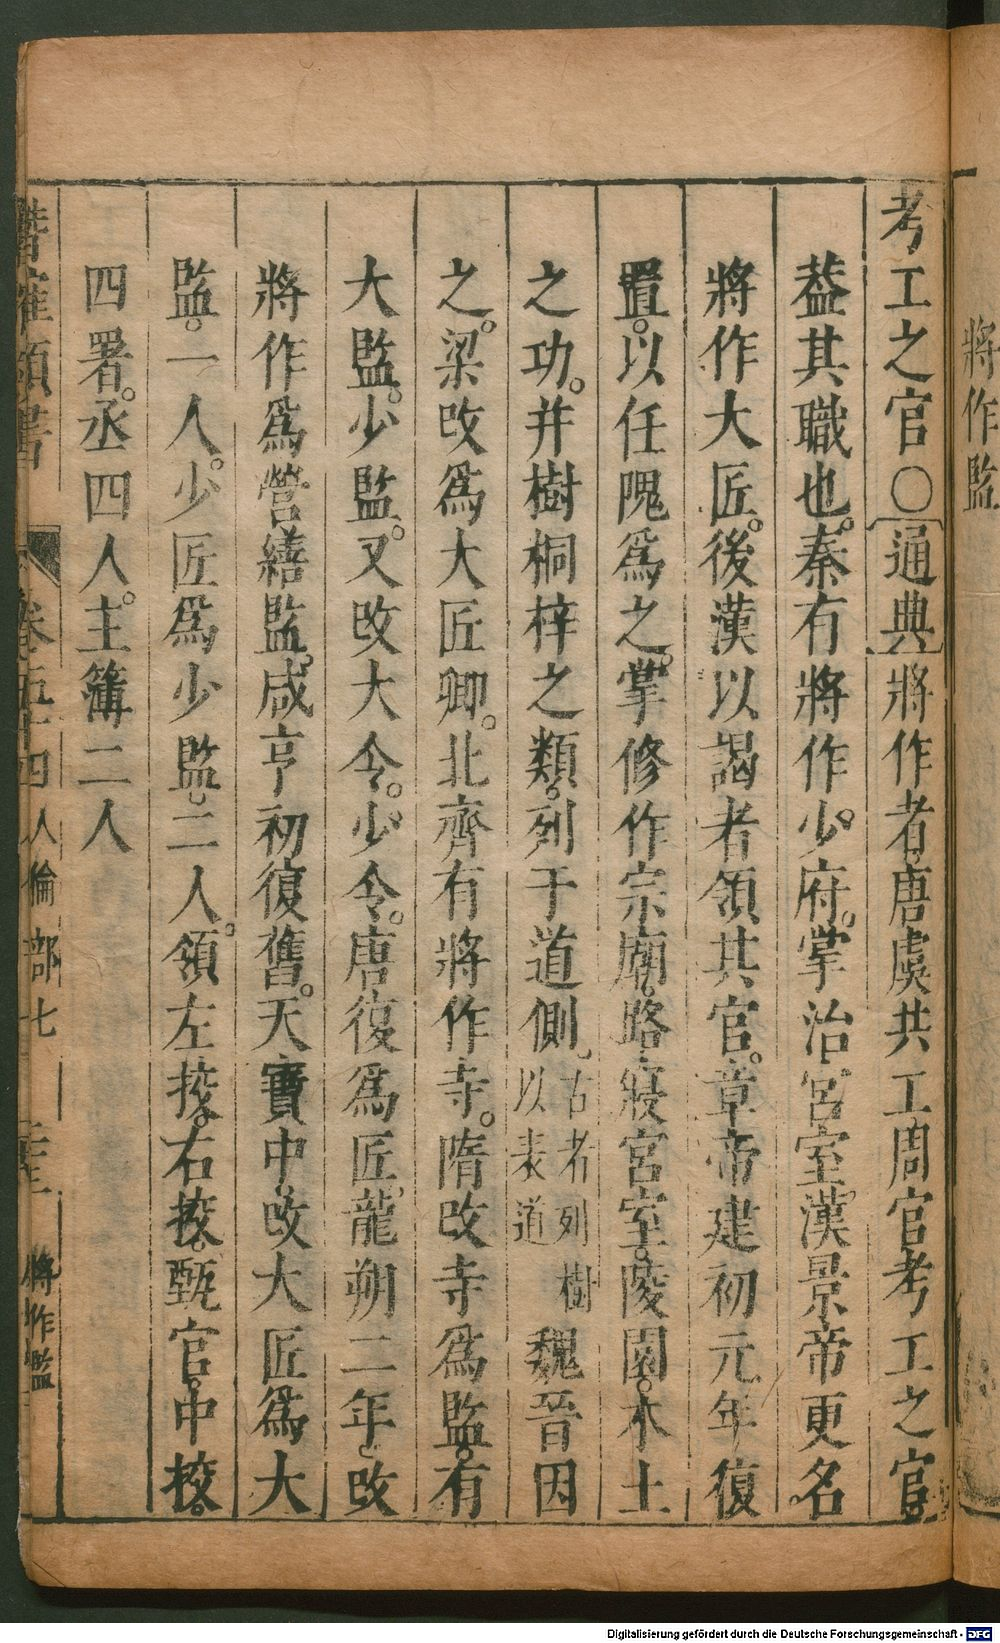 將作監
考工之官○通典將作者唐虞共工周官考工之官
葢其職也。秦有將作少府。掌治宮室漢景帝更名
將作大匠。後漢以謁者領其官。章帝建初元年復
置。以任隗爲之。掌修作宗廟。路寢宮室。陵園。木土
之功。并樹桐梓之類。列于道側。古者列樹以表道魏晉因
之。梁改爲大匠卿。北齊有將作寺。隋改寺爲監。有
大監。少監。又改大令。少令。唐復爲匠。龍朔二年。改
將作爲營繕監。咸亨初復舊。天寶中。改大匠爲大
監。一人。少匠爲少監。二人。領左挍。右挍。甄官。中挍。
四署。丞四人。主簿二人
潛確類書 卷五十四 人倫部七 將作監
Digitalisierung gefördert durch die Deutsche Forschungsgemeinschaft - DFG